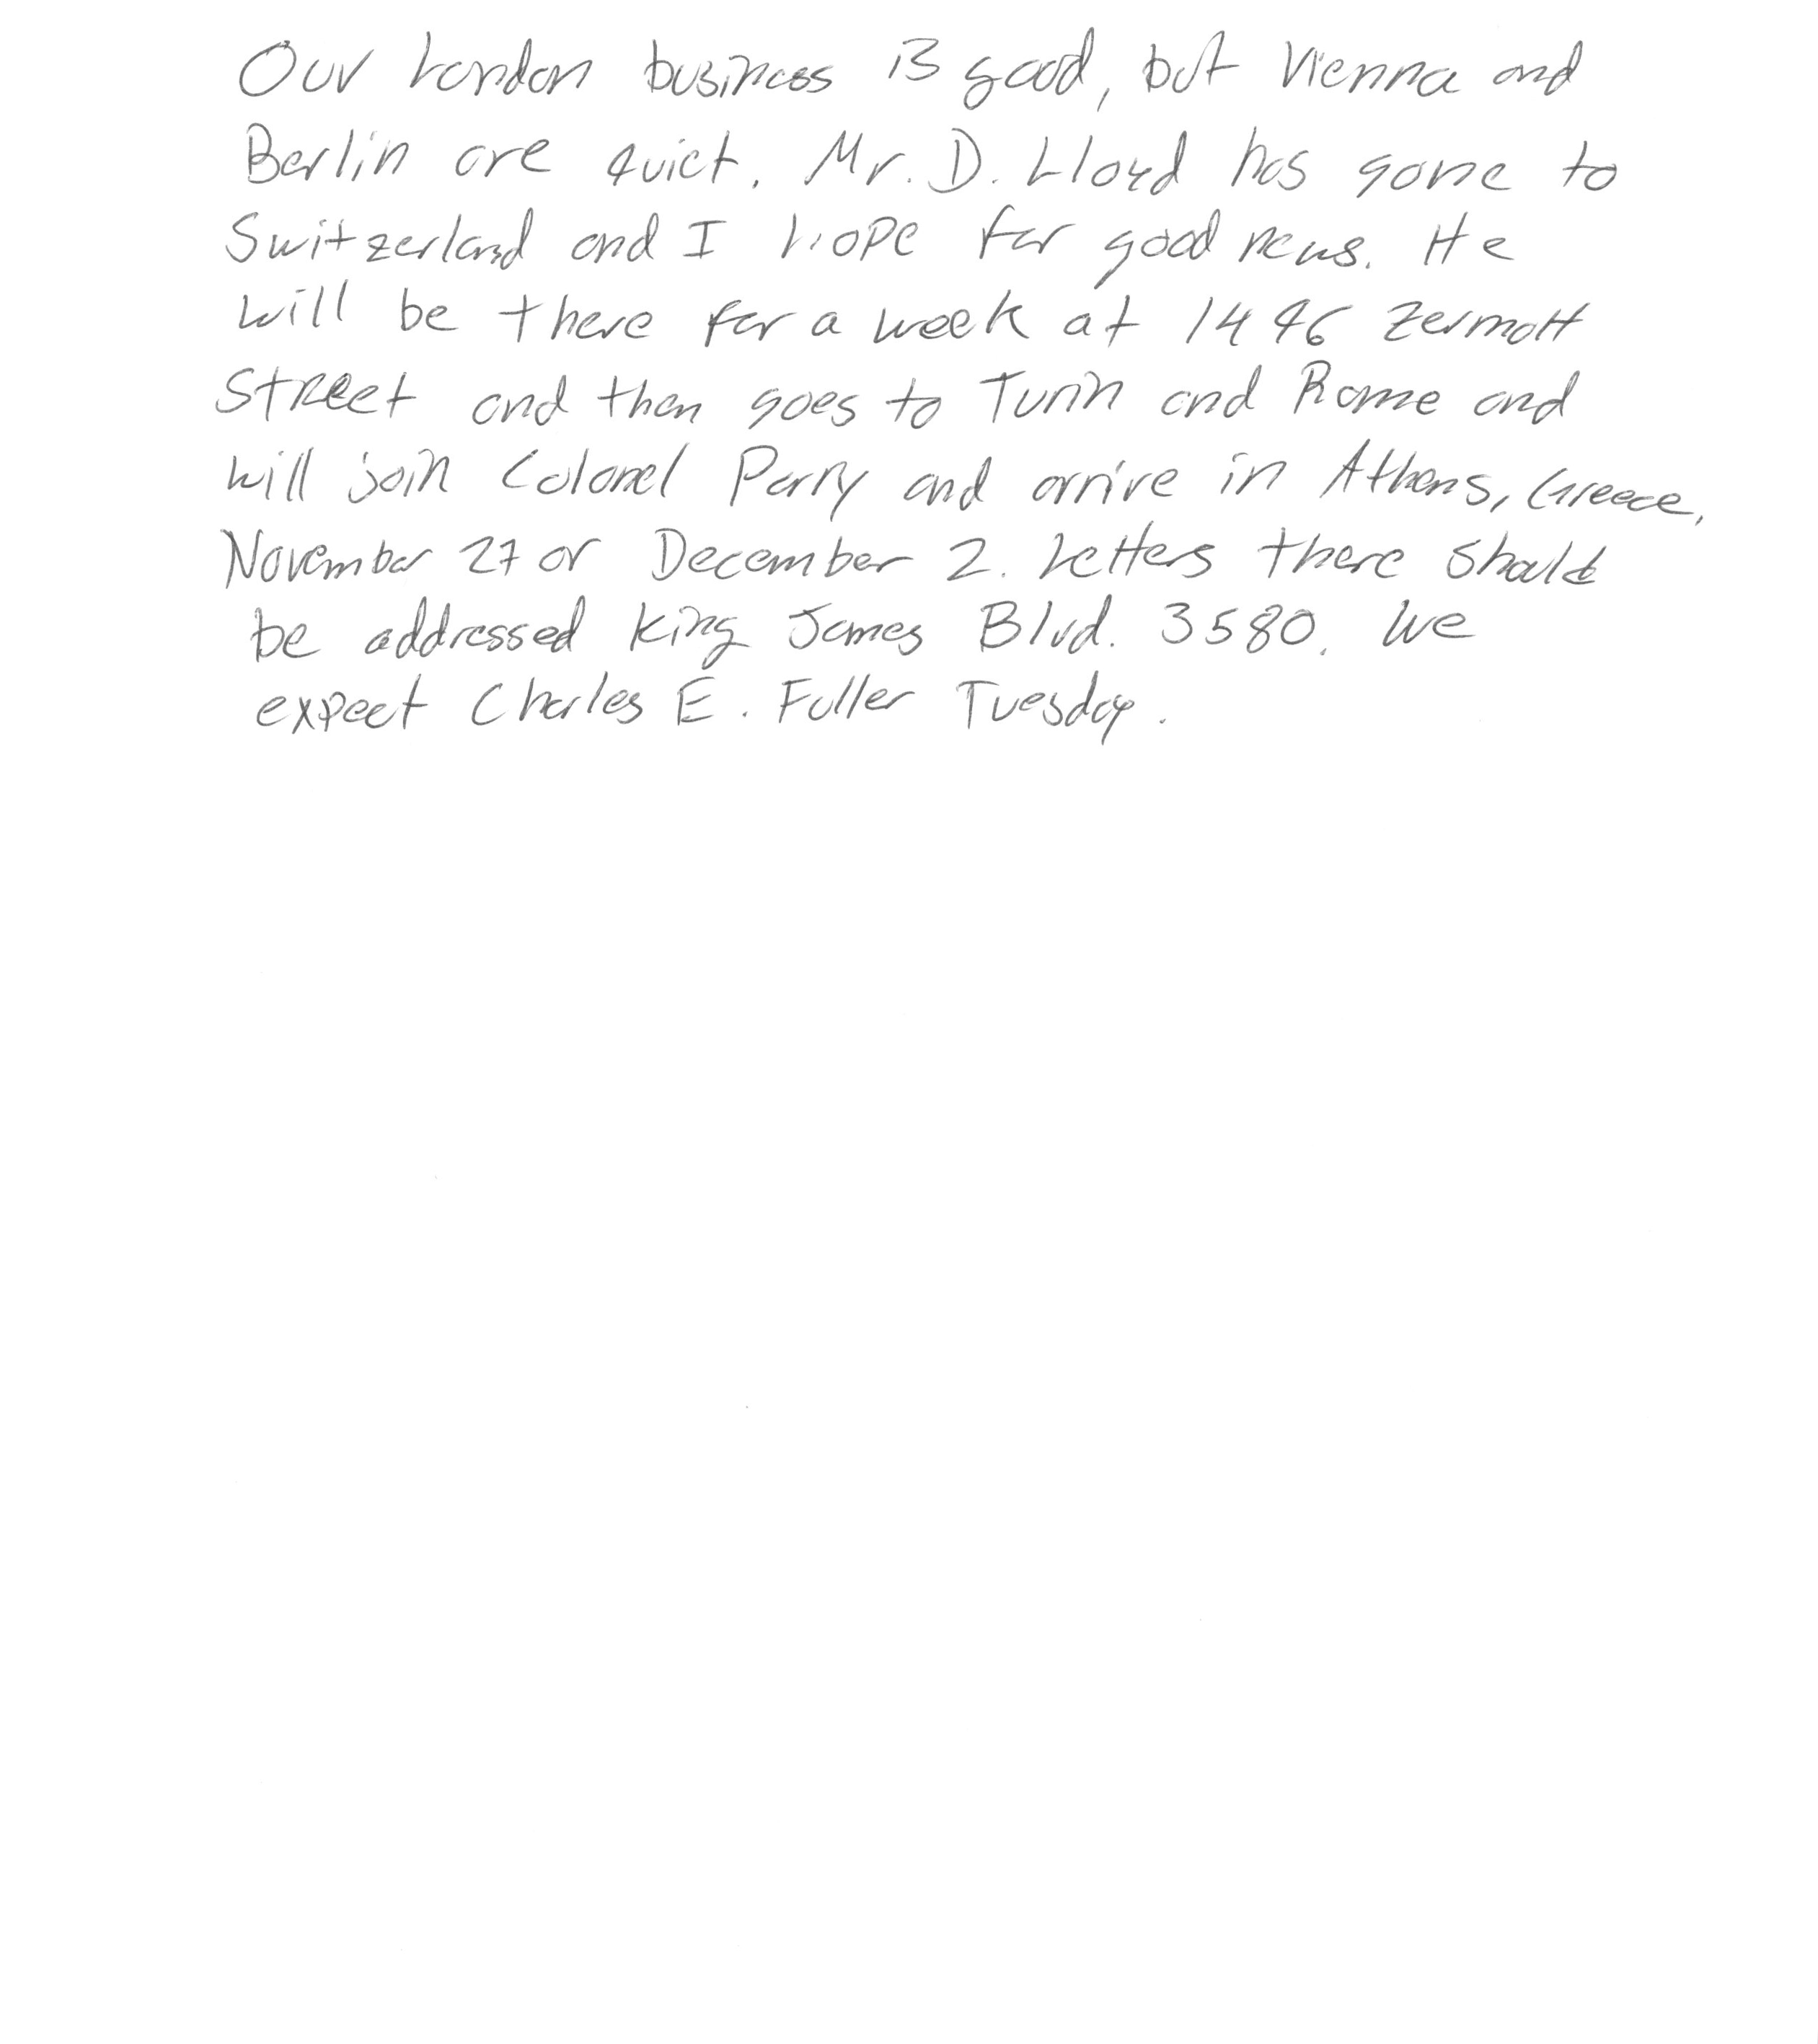 Our London business is good, but Vienna and
Berlin are quiet. Mr. D. Lloyd has gone to
Switzerland and I hope for good news. He
will be there for a week at 1496 Zermott
Street and then goes to Turin and Rome and
will join Colonel Parry and arrive in Athens, Greece,
November 27 or December 2. Letters there should
be addressed King James Blvd. 3580. We
expect Charles E. Fuller Tuesday.